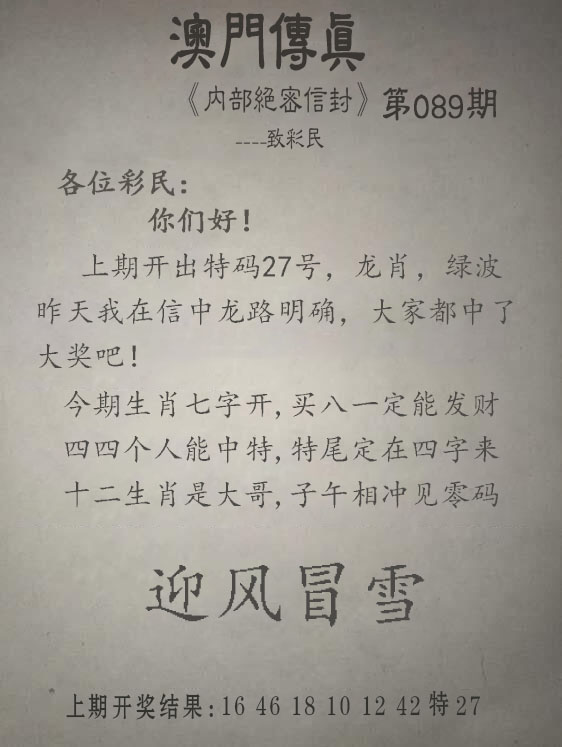 澳門傳眞
《内部絕密信封》第089期
----致彩民
各位彩民：
你们好！
上期开出特码27号，龙肖，绿波
昨天我在信中龙路明确，大家都中了
大奖吧！
今期生肖七字开,买八一定能发财
四四个人能中特,特尾定在四字来
十二生肖是大哥,子午相冲见零码
迎风冒雪
上期开奖结果:16 46 18 10 12 42 特 27